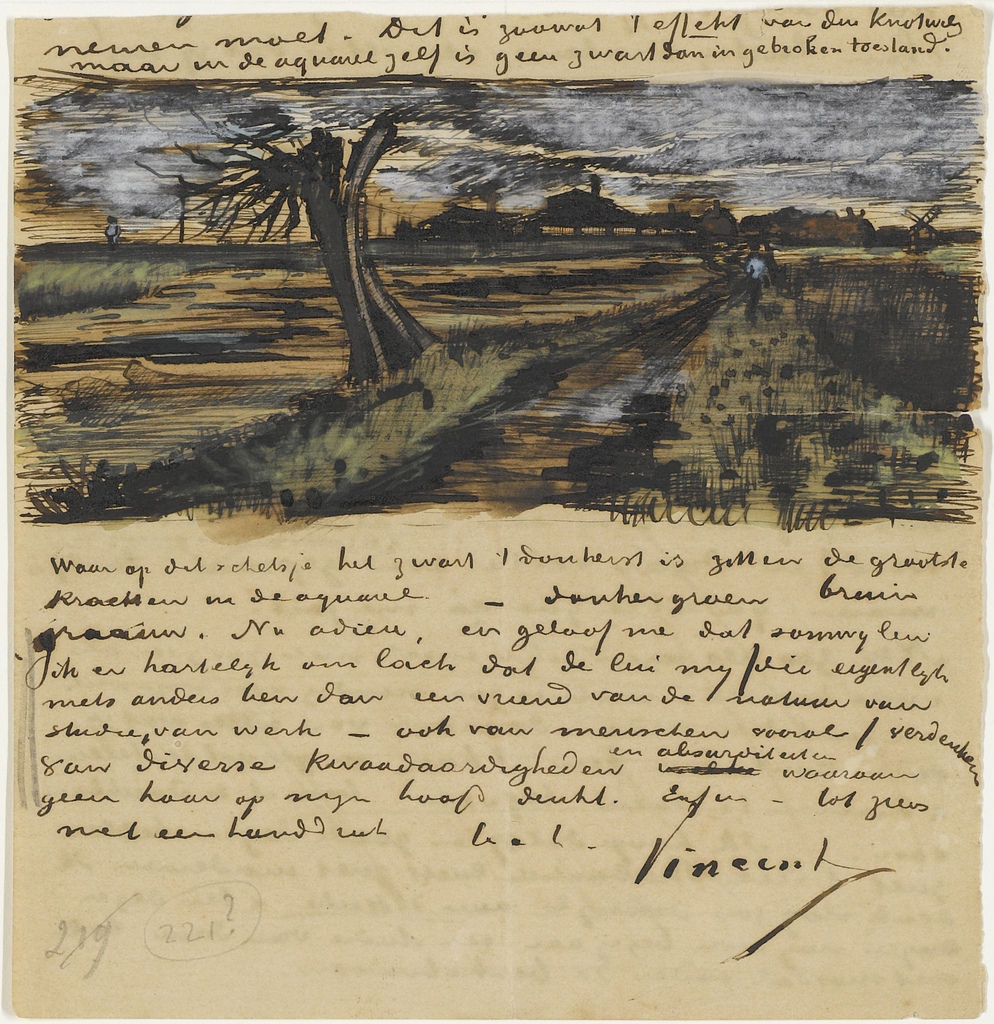 nemen moet. Dit is zoowat 't effekt van den Knotwilg
maar in de aquarel zelf is geen zwart dan in gebroken toestand.
Waar op dit schetsje het zwart 't donkerst is zitten de grootste
krachten in de aquarel – donkergroen bruin
graauw. Nu adieu, en geloof me dat somwylen
ik er hartelyk om lach dat de lui my (die eigentlyk
niets anders ben dan een vriend van de natuur van
studie, van werk – ook van menschen vooral) verdenken
van diverse kwaadaardigheden en absurditeiten waaraan
geen haar op myn hoofd denkt. Enfin – tot ziens
met een handdruk t. à t.
Vincent
219
221?